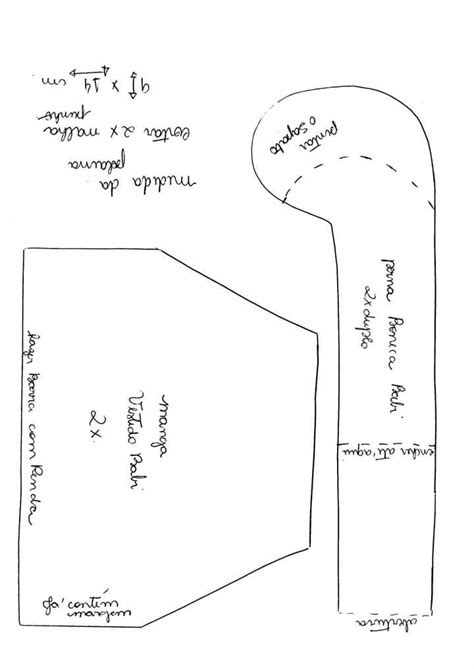 medida da
polaina
cortar 2x malha
punho
9 x 14 cm
pintar
o sapato
perna Boneca Babi
2x duplo
encher até aqui
abertura
manga
Vestido Babi
2x
fazer Barra com Renda
já contém